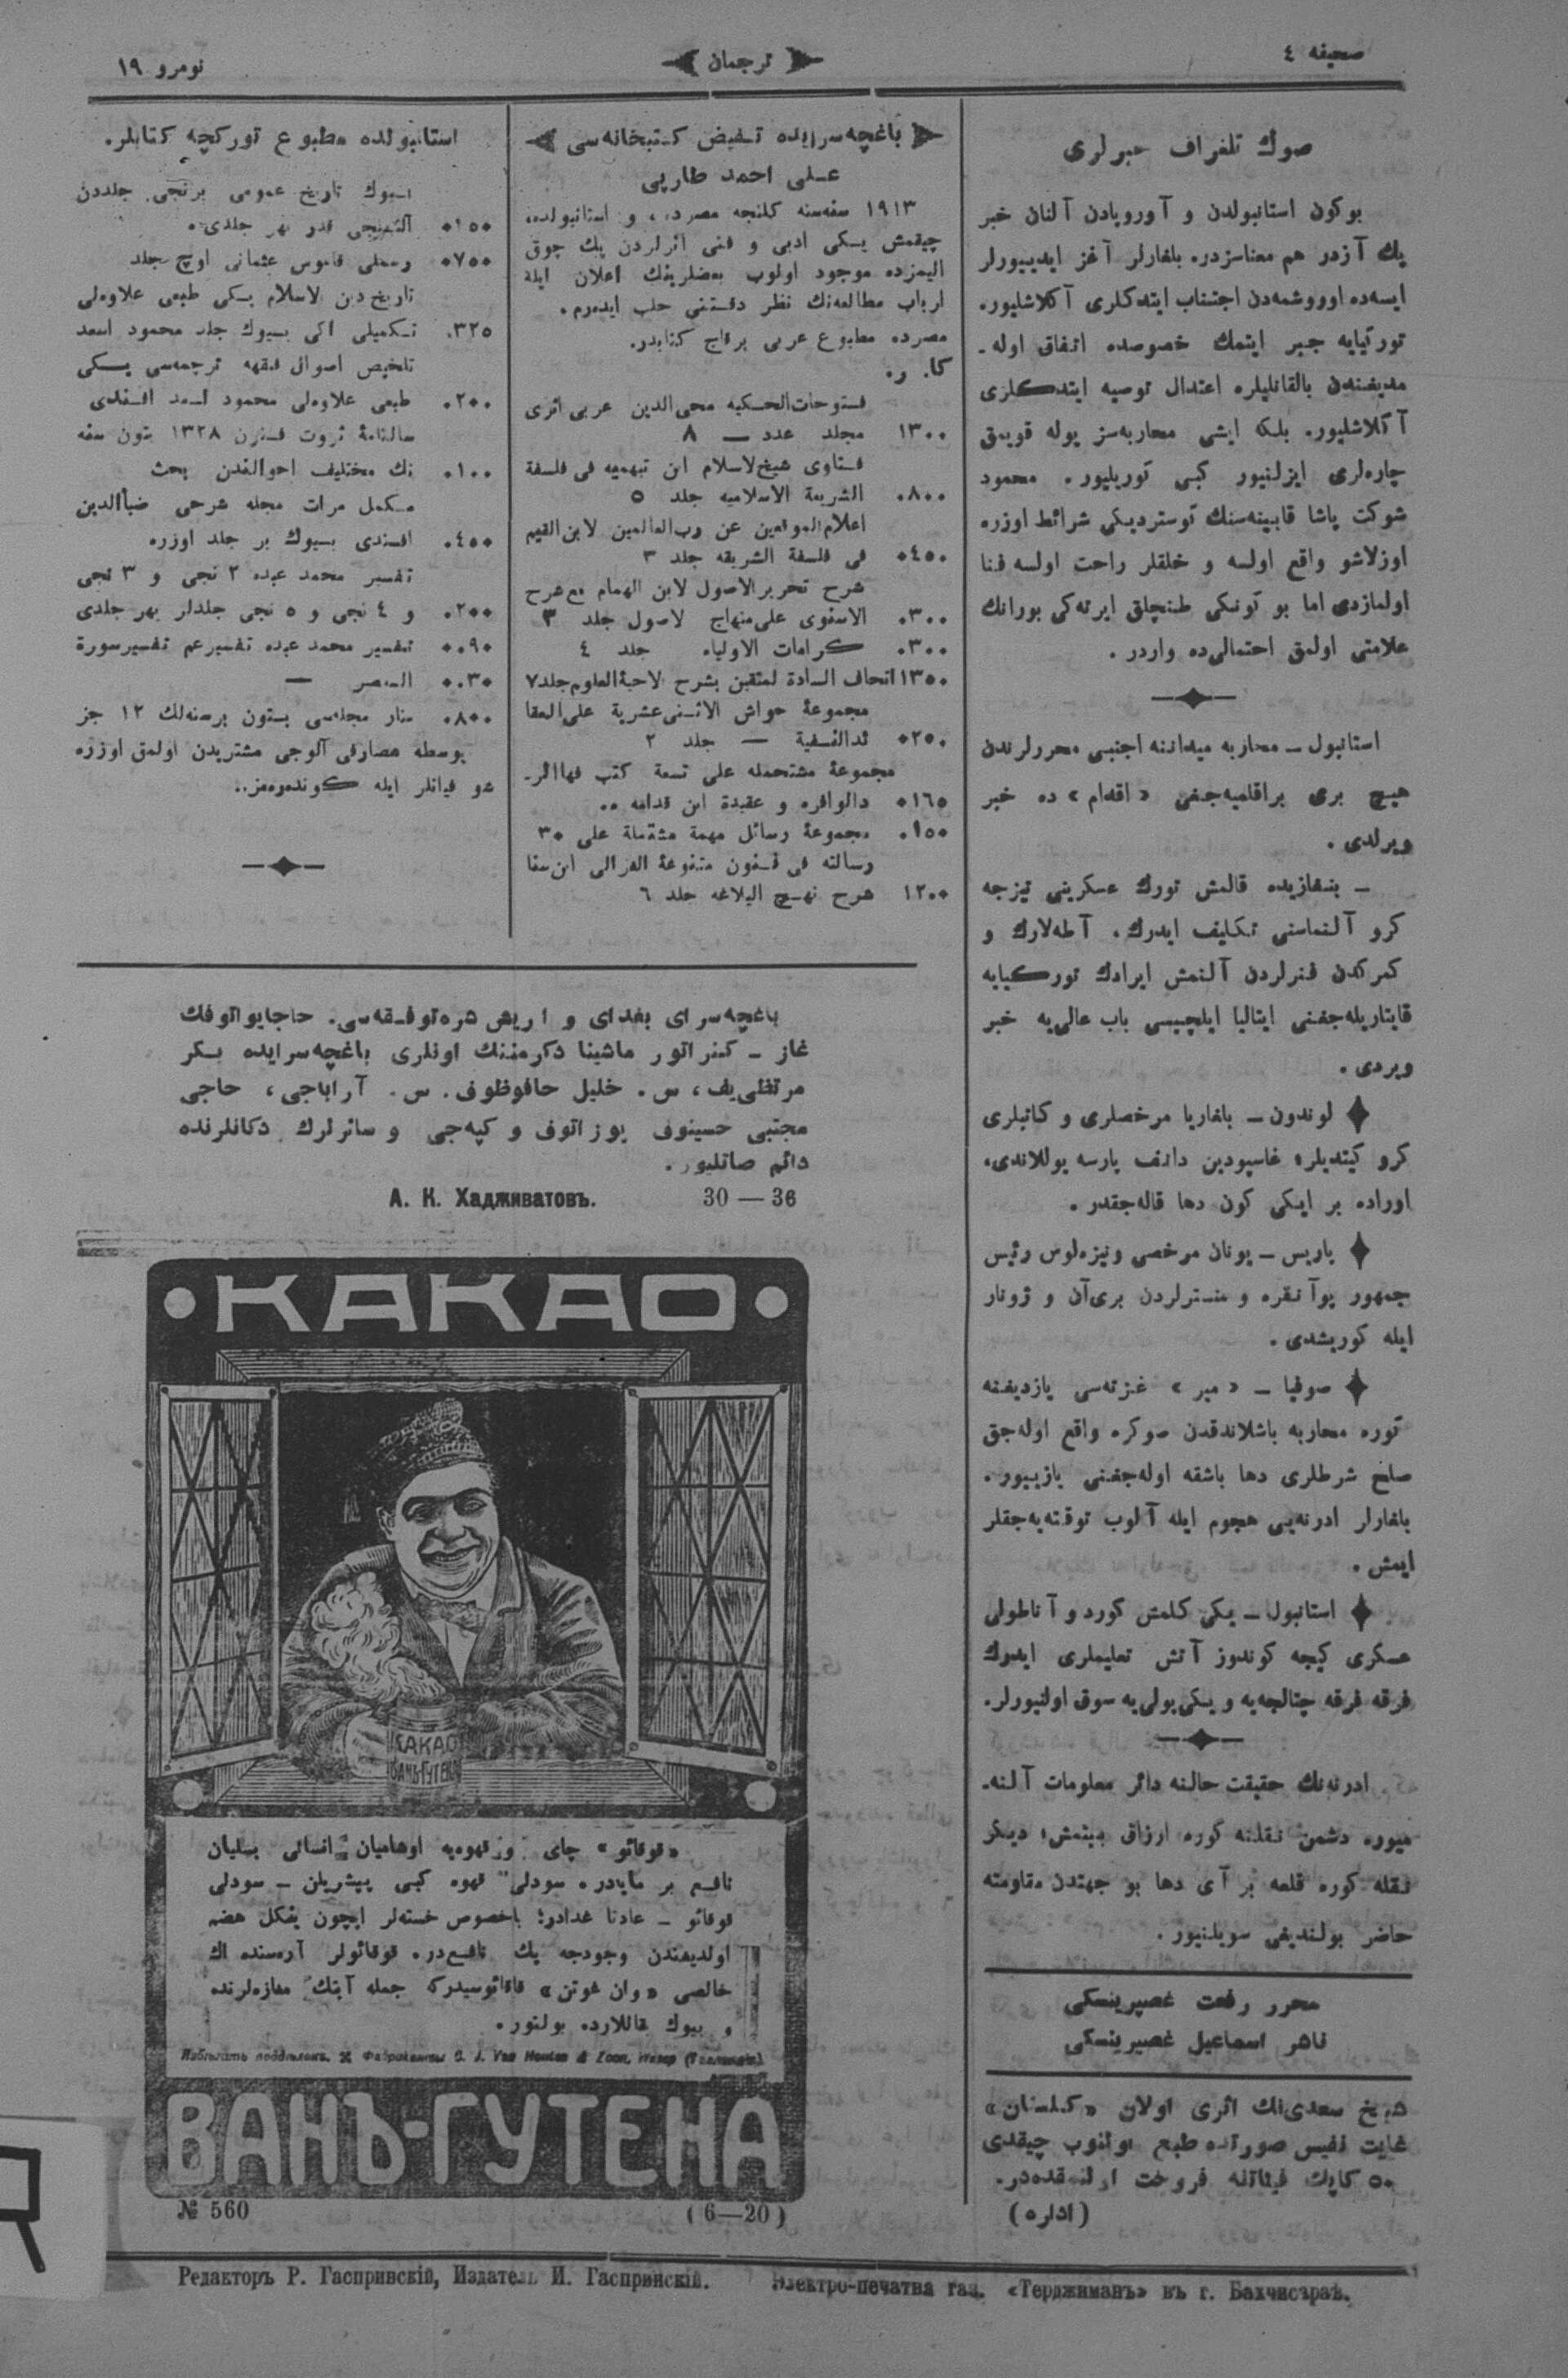 صحیفه ٤
ترجمان
نومرو ١٩
صوڭ تلغراف خبرلری
بوكون استانبولدن و آوروپادن آلنان خبر
پك آزدر هم معناسزدر. بلغارلر آغز ایدییورلر
ایسه‌ده اورووشمه‌دن اجتناب ایتدكلری آكلاشلیور.
تورکیایه جبر ایتمك خصوصده اتفاق اوله‌ـ
مدیغندن بالقانلیلره اعتدال توصیه ایتدكلری
آكلاشلیور. بلكه ایشی محاربه‌سز یوله قویمق
چاره‌لری ایزلنیور كبی كوریلیور. محمود
شوكت پاشا قابینه‌سنك كوستردیكی شرائط اوزره
اوزلاشو واقع اولسه و خلقلر راحت اولسه فنا
اولمازدی اما بو كونكی طنچلق ایرته‌كی بورانك
علامتی اولمق احتمالی‌ده واردر .
استانبول ـ محاربه میداننه اجنبی محررلرندن
هیچ بری براقلمیه‌جغی «اقدام» ده خبر
ویرلدی .
ـ بنغازیده قالمش تورك عسكرینی تیزجه
كرو آلنماسنی تكلیف ایدرك، آطه‌لارك و
كمركدن فنرلردن آلنمش ایرادك توركیایه
قایتاریله‌جغنی ایتالیا ایلچیسی باب عالی‌یه خبر
ویردی .
لوندون ـ بلغاریا مرخصلری و كاتبلری
كرو كیتدیلر؛ غاسپودین دانف پارسه یوللاندی،
اوراده بر ایكی كون دها قاله‌جقدر .
پاریس ـ یونان مرخصی ونیزه‌لوس رئیس
جمهور پوآنقره و منسترلردن بری‌آن و ژونار
ایله كوریشدی .
صوفیا ـ «میر» غزته‌سی یازدیغنه
كوره محاربه باشلاندقدن صوكره واقع اوله‌جق
صلح شرطلری دها باشقه اوله‌جغنی یازییور.
بلغارلر ادرنه‌یی هجوم ایله آلوب توقته‌یه‌جقلر
ایمش .
استانبول ـ یكی كلمش كورد و آناطولی
عسكری كیجه كوندوز آتش تعلیملری ایدوب
فرقه فرقه چتالجه‌یه و یكی بولی‌یه سوق اولنیورلر.
ادرنه‌نك حقیقت حالنه دائر معلومات آلنه‌ـ
میور. دشمن نقلنه كوره ارزاق بیتمش؛ دیكر
نقله كوره قلعه بر آی دها بو جهتدن مقاومته
حاضر بولندیغی سویلنیور .
محرر رفعت غصپرینسكی
ناشر اسماعیل غصپرینسكی
شیخ سعدی‌نك اثری اولان «كلستان»
غایت نفیس صورتده طبع اولنوب چیقدی
٥٠ كاپك فیئاتله فروخت اولنمقده‌در.
(اداره)
باغچه‌سرایده تفیض كتبخانه‌سی
علی احمد طارپی
١٩١٣ سنه‌سنه كلنجه مصرده، و استانبولده،
چیقمش یكی ادبی و فنی اثرلردن پك چوق
الیمزده موجود اولوب بعضلرینك اعلان ایله
ارباب مطالعه‌نك نظر دقتنی جلب ایده‌رم.
مصرده مطبوع عربی برقاچ كتابدر.
فتوحات‌الحكیه محی‌الدین عربی اثری
مجلد عدد — ٨ ١٣٠٠
فتاوی شیخ‌لاسلام ابن تیهمیه فی فلسفة
الشریعة الاسلامیه جلد ٥ ٨٠٠.
اعلام‌الموقعین عن رب‌العالمین لابن‌القیم
فی فلسفة الشریقه جلد ٣ ٤٥٠.
شرح تحریرالاصول لابن الهمام مع شرح
الاسنوی علی‌منهاج لاصول جلد ٣ ٣٠٠.
كرامات الاولیاء جلد ٤ ٣٠٠.
اتحاف السادة لمتقین بشرح لاحیاءالعلوم‌جلد٧ ١٣٥٠
مجموعۀ حواش الاثنی‌عشریة علی‌العقا
ئدالنسفیة — جلد ٢ ٢٥٠.
مجموعۀ مشتحمله علی تسعة كتب
دالوافره و عقیدة ابن قدامه ١٦٥.
مجموعۀ رسائل مهمة مشتملة علی ٣٠ ١٥٠.
رسالته فی فنون متنوعۀ الغزالی ابن‌سنا
شرح نهج البلاغه جلد ٦ ١٢٠٠
استانبولده مطبوع توركچه كتابلر.
بیوك تاریخ عمومی برنجی جلددن
آلتنجی قدر بهر جلدی. ١٥٠.
رسملی قاموس عثمانی اوچ جلد ٧٥٠.
تاریخ دین لاسلام یكی طبعی علاوه‌لی
تكمیلی اكی بیوك جلد محمود اسعد ٣٢٥.
تلخیص اصوال فقهه ترجمه‌سی یكی
طبعی علاوه‌لی محمود اسعد افندی ٢٠٠.
سالنامۀ ثروت فنون ١٣٢٨ بتون سنه
نك مختلیف احوالندن بحث ١٠٠.
مكمل مرات مجله شرحی ضیاءالدین
افندی بیوك بر جلد اوزره ٤٥٠.
تفسیر محمد عبده ٢ نجی و ٣ نجی
و ٤ نجی و ٥ نجی جلدلر بهر جلدی ٢٠٠.
تفسیر محمد عبده تفسیرعم تفسیرسورة ٠٩٠.
العصر — ٠٣٠.
منار مجله‌سی بتون برسنه‌لك ١٢ جز ٨٠٠.
پوسطه مصارفی آلوجی مشتریدن اولمق اوزره
شو فیاتلر ایله كوندەرەمز.:
باغچه‌سرای بغدای و اریش شره‌توفقه‌سی. حاجایواتوفك
غاز ـ كنراتور ماشینا دكرمننك اونلری باغچه‌سرایده بكر
مرتظی‌یف، س. خلیل حافوظوف. س. آراباجی، حاجی
مجتبی حسینوف یوزاتوف و كپه‌جی و سائرلرك دكانلرنده
دائم صاتلیور.
А. К. Хадживатовъ. 30 — 36
КАКАО
КАКАО
ВАНЪ-ГУТЕНА
«قوقائو» چای و قهوه‌یه اوشامیان انسانی بسلیان
نافع بر مایه‌در. سودلی قهوه كبی پیشریلن ـ سودلی
قوقائو ـ عادتا غدادر؛ باخصوص خسته‌لر ایچون یڭكل هضم
اولدیغندن وجودجه پك نافع‌در. قوقائولر آره‌سنده اڭ
خالصی «وان غوتن» قاقائوسیدركه جمله آپتك مغازه‌لرنده
و بیوك بقاللارده بولنور.
Избѣгать поддѣлокъ. Фабриканты C. J. Van Houten & Zoon, Weesp (Голландія).
ВАНЪ-ГУТЕНА
№ 560 (6—20)
Редакторъ Р. Гаспринскій, Издатель И. Гаспринскій. Электро-печатня газ. «Терджиманъ» въ г. Бахчисараѣ.